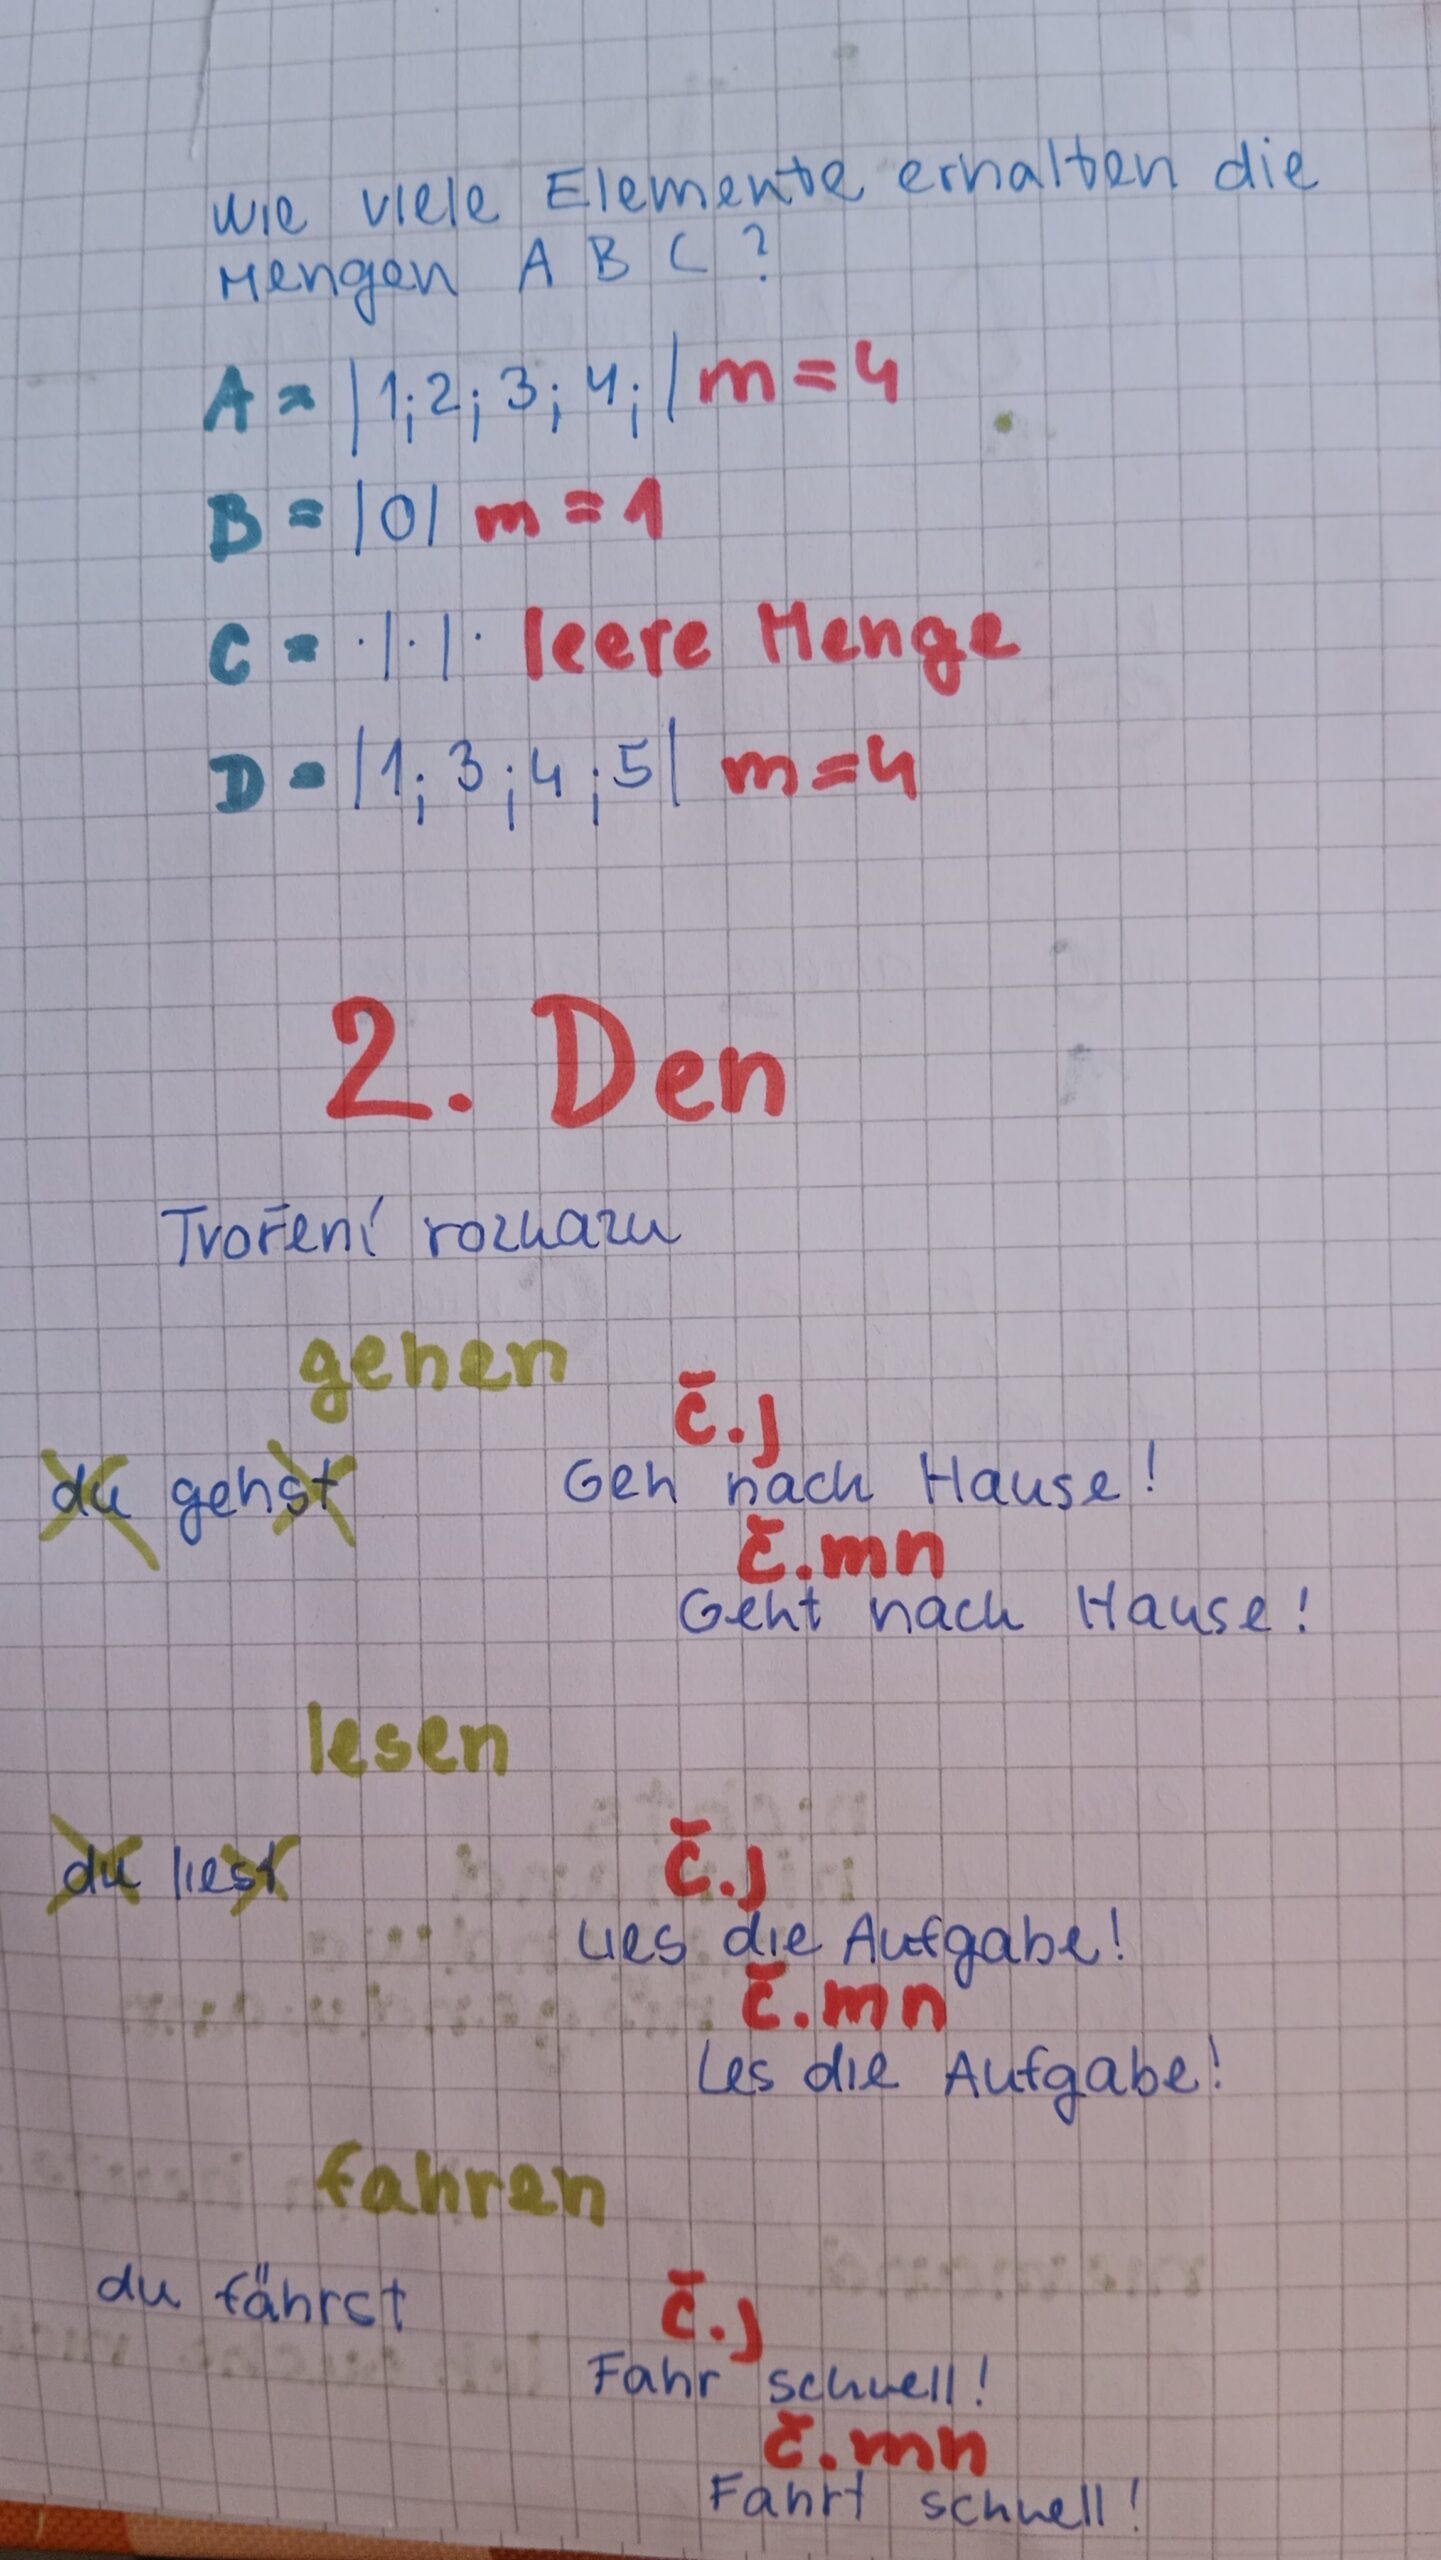 Wie viele Elemente erhalten die
Mengen A B C ?
A = |1; 2; 3; 4; | m = 4
B = |0| m = 1
C = ·|·|· leere Menge
D = |1; 3; 4; 5| m = 4
2. Den
Tvoření rozkazu
gehen
č.j
du gehst Geh nach Hause!
č.mn
Geht nach Hause!
lesen
č.j
du liest
Lies die Aufgabe!
č.mn
Les die Aufgabe!
fahren
du fährst č.j
Fahr schnell!
č.mn
Fahrt schnell!